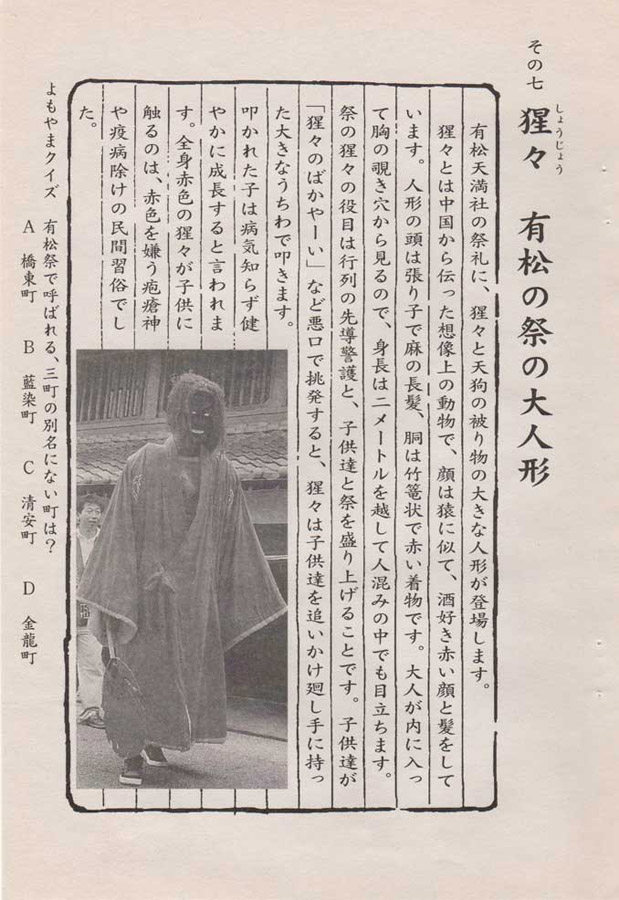 その七
猩々　有松の祭の大人形
しょうじょう
有松天満社の祭礼に、猩々と天狗の被り物の大きな人形が登場します。
猩々とは中国から伝った想像上の動物で、顔は猿に似て、酒好き赤い顔と髪をして
います。人形の頭は張り子で麻の長髪、胴は竹篭状で赤い着物です。大人が内に入っ
て胸の覗き穴から見るので、身長は二メートルを越して人混みの中でも目立ちます。
祭の猩々の役目は行列の先導警護と、子供達と祭を盛り上げることです。子供達が
「猩々のばかやーい」など悪口で挑発すると、猩々は子供達を追いかけ廻し手に持っ
た大きなうちわで叩きます。
叩かれた子は病気知らず健
やかに成長すると言われま
す。全身赤色の猩々が子供に
触るのは、赤色を嫌う疱瘡神
や疫病除けの民間習俗でし
た。
よもやまクイズ　有松祭で呼ばれる、三町の別名にない町は？
A　橋東町　B　藍染町　C　清安町　D　金龍町